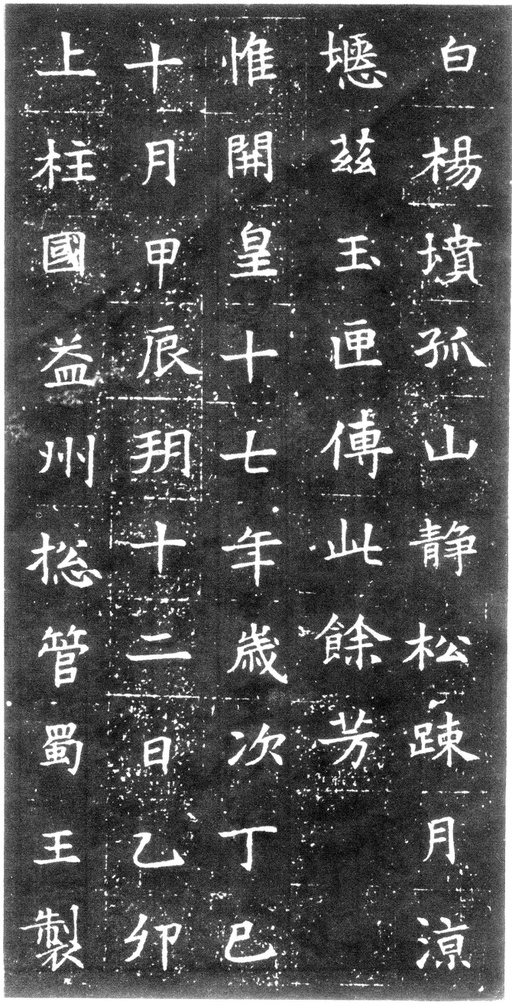 白楊墳孤山静松踈月涼
兹玉匣傳此餘芳
惟開皇十七年歲次丁巳
十月甲辰朔十二日乙卯
上柱國益州捴管蜀王製